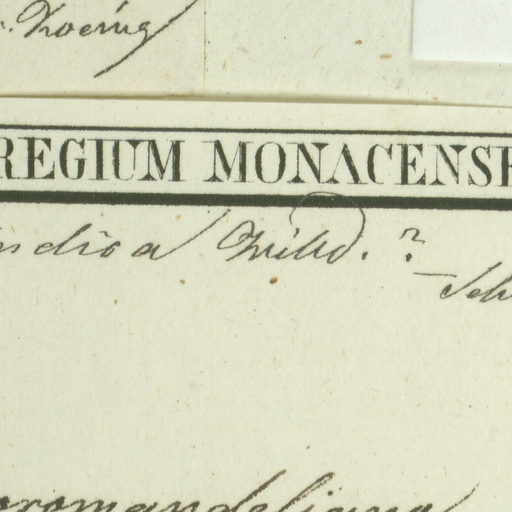 Koenig
REGIUM MONACENSE
indica Willd. ?
Sch
coromandeliana